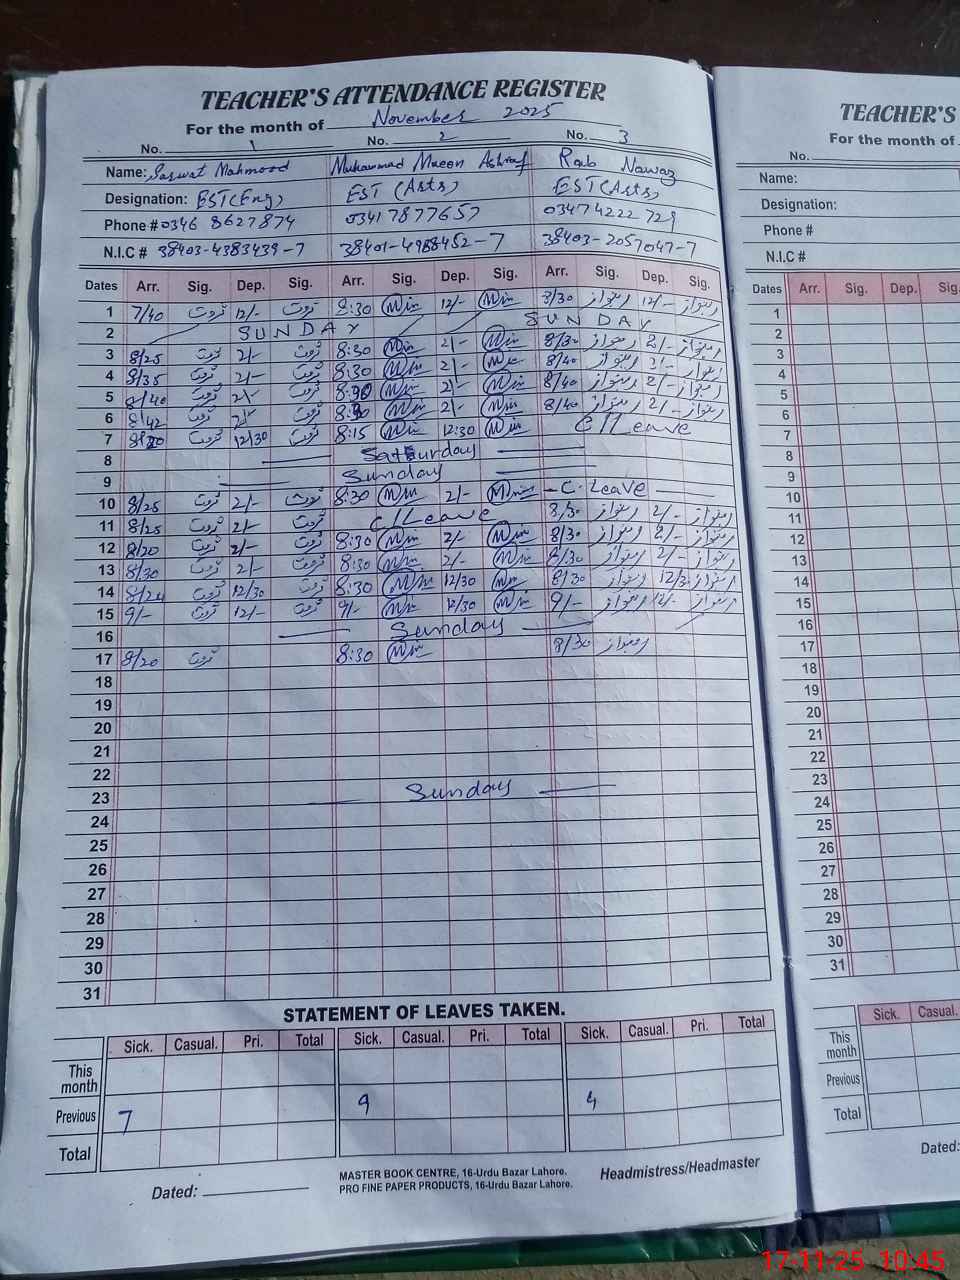 TEACHER'S ATTENDANCE REGISTER
For the month of November 2025
No. 1 No. 2 No. 3
Name: Sarwat Mahmood Muhammad Moeen Ashraf Rab Nawaz
Designation: EST(Eng) EST (Arts) EST(Arts)
Phone # 0346 8627874 03417877657 03474222729
N.I.C # 38403-4383439-7 38401-4988452-7 38403-2057047-7
Dates Arr. Sig. Dep. Sig. Arr. Sig. Dep. Sig. Arr. Sig. Dep. Sig.
1 7/40 ثروت 12/- ثروت 8:30 12/- 8/30 ربنواز 12/- ربنواز
2 SUNDAY SUNDAY
3 8/25 ثروت 2/- ثروت 8:30 2/- 8/30 ربنواز 2/- ربنواز
4 8/35 ثروت 2/- ثروت 8:30 2/- 8/40 ربنواز 2/- ربنواز
5 8/40 ثروت 2/- ثروت 2/- 8/40 ربنواز 2/- ربنواز
6 8/42 ثروت 2/- ثروت 2/- 8/40 ربنواز 2/- ربنواز
7 ثروت 12/30 ثروت 8:15 12:30 C/Leave
8 Saturday
9 Sunday
10 8/25 ثروت 2/- ثروت 8:30 2/- C. Leave
11 8/25 ثروت 2/- ثروت C/Leave 8/30 ربنواز 2/- ربنواز
12 8/20 ثروت 2/- ثروت 8:30 2/- 8/30 ربنواز 2/- ربنواز
13 8/30 ثروت 2/- ثروت 8:30 2/- 8/30 ربنواز 2/- ربنواز
14 ثروت 12/30 ثروت 8:30 12/30 8/30 ربنواز 12/30 ربنواز
15 9/- ثروت 12/- ثروت 9/- 12/30 9/- ربنواز 12/- ربنواز
16 Sunday
17 8/20 ثروت 8:30 8/30 ربنواز
18
19
20
21
22
23 Sunday
24
25
26
27
28
29
30
31
STATEMENT OF LEAVES TAKEN.
Sick. Casual. Pri. Total Sick. Casual. Pri. Total Sick. Casual. Pri. Total
This month
Previous 7 9 4
Total
Dated:
MASTER BOOK CENTRE, 16-Urdu Bazar Lahore.
PRO FINE PAPER PRODUCTS, 16-Urdu Bazar Lahore.
Headmistress/Headmaster
TEACHER'S
For the month of
No.
Name:
Designation:
Phone #
N.I.C #
Dates Arr. Sig. Dep. Sig.
1
2
3
4
5
6
7
8
9
10
11
12
13
14
15
16
17
18
19
20
21
22
23
24
25
26
27
28
29
30
31
Sick. Casual.
This month
Previous
Total
Dated:
17-11-25 10:45